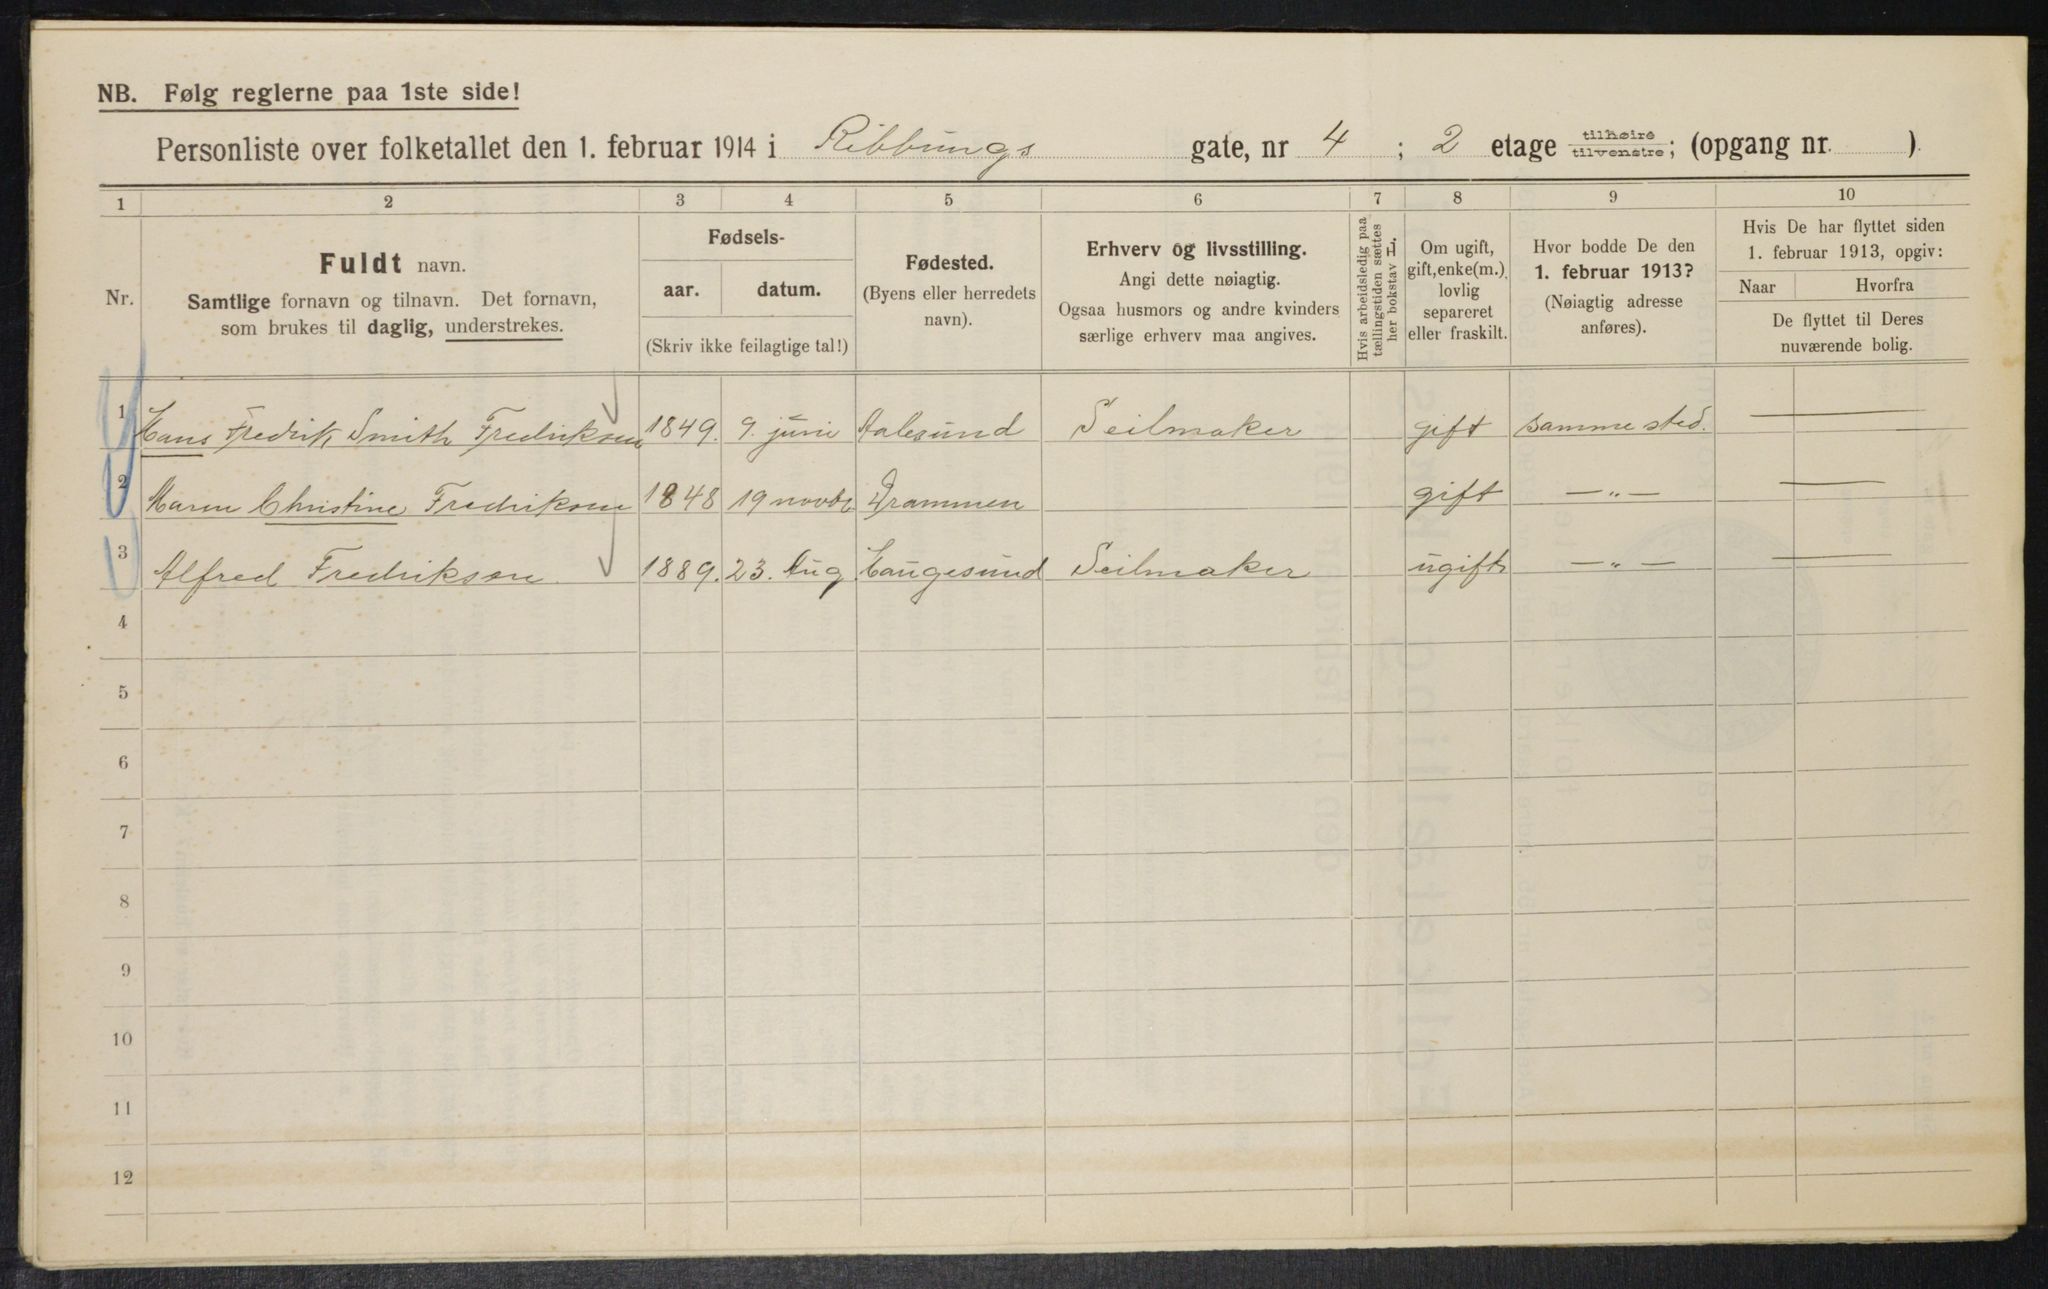 NB. Følg reglerne paa 1ste side!
Personliste over folketallet den 1. februar 1914 i Ribbungs gate, nr 4 ; 2 etage tilhøire tilvenstre; (opgang nr. ).
1 2 3 4 5 6 7 8 9 10
Nr.
Fuldt navn.
Samtlige fornavn og tilnavn. Det fornavn,
som brukes til daglig, understrekes.
Fødsels-
aar. datum.
(Skriv ikke feilagtige tal!)
Fødested.
(Byens eller herredets
navn).
Erhverv og livsstilling.
Angi dette nøiagtig.
Ogsaa husmors og andre kvinders
særlige erhverv maa angives.
Hvis arbeidsledig paa
tællingstiden sættes
her bokstav L.
Om ugift,
gift, enke(m.),
lovlig
separeret
eller fraskilt.
Hvor bodde De den
1. februar 1913?
(Nøiagtig adresse
anføres).
Hvis De har flyttet siden
1. februar 1913, opgiv:
Naar Hvorfra
De flyttet til Deres
nuværende bolig.
1 Hans Fredrik Smith Fredriksen 1849. 9. juni Aalesund Seilmaker gift samme sted. —
2 Maren Christine Fredriksen 1848 19 novbr Drammen gift — " — —
3 Alfred Fredriksen 1889. 23. Aug Haugesund Seilmaker ugift — " — —
4
5
6
7
8
9
10
11
12